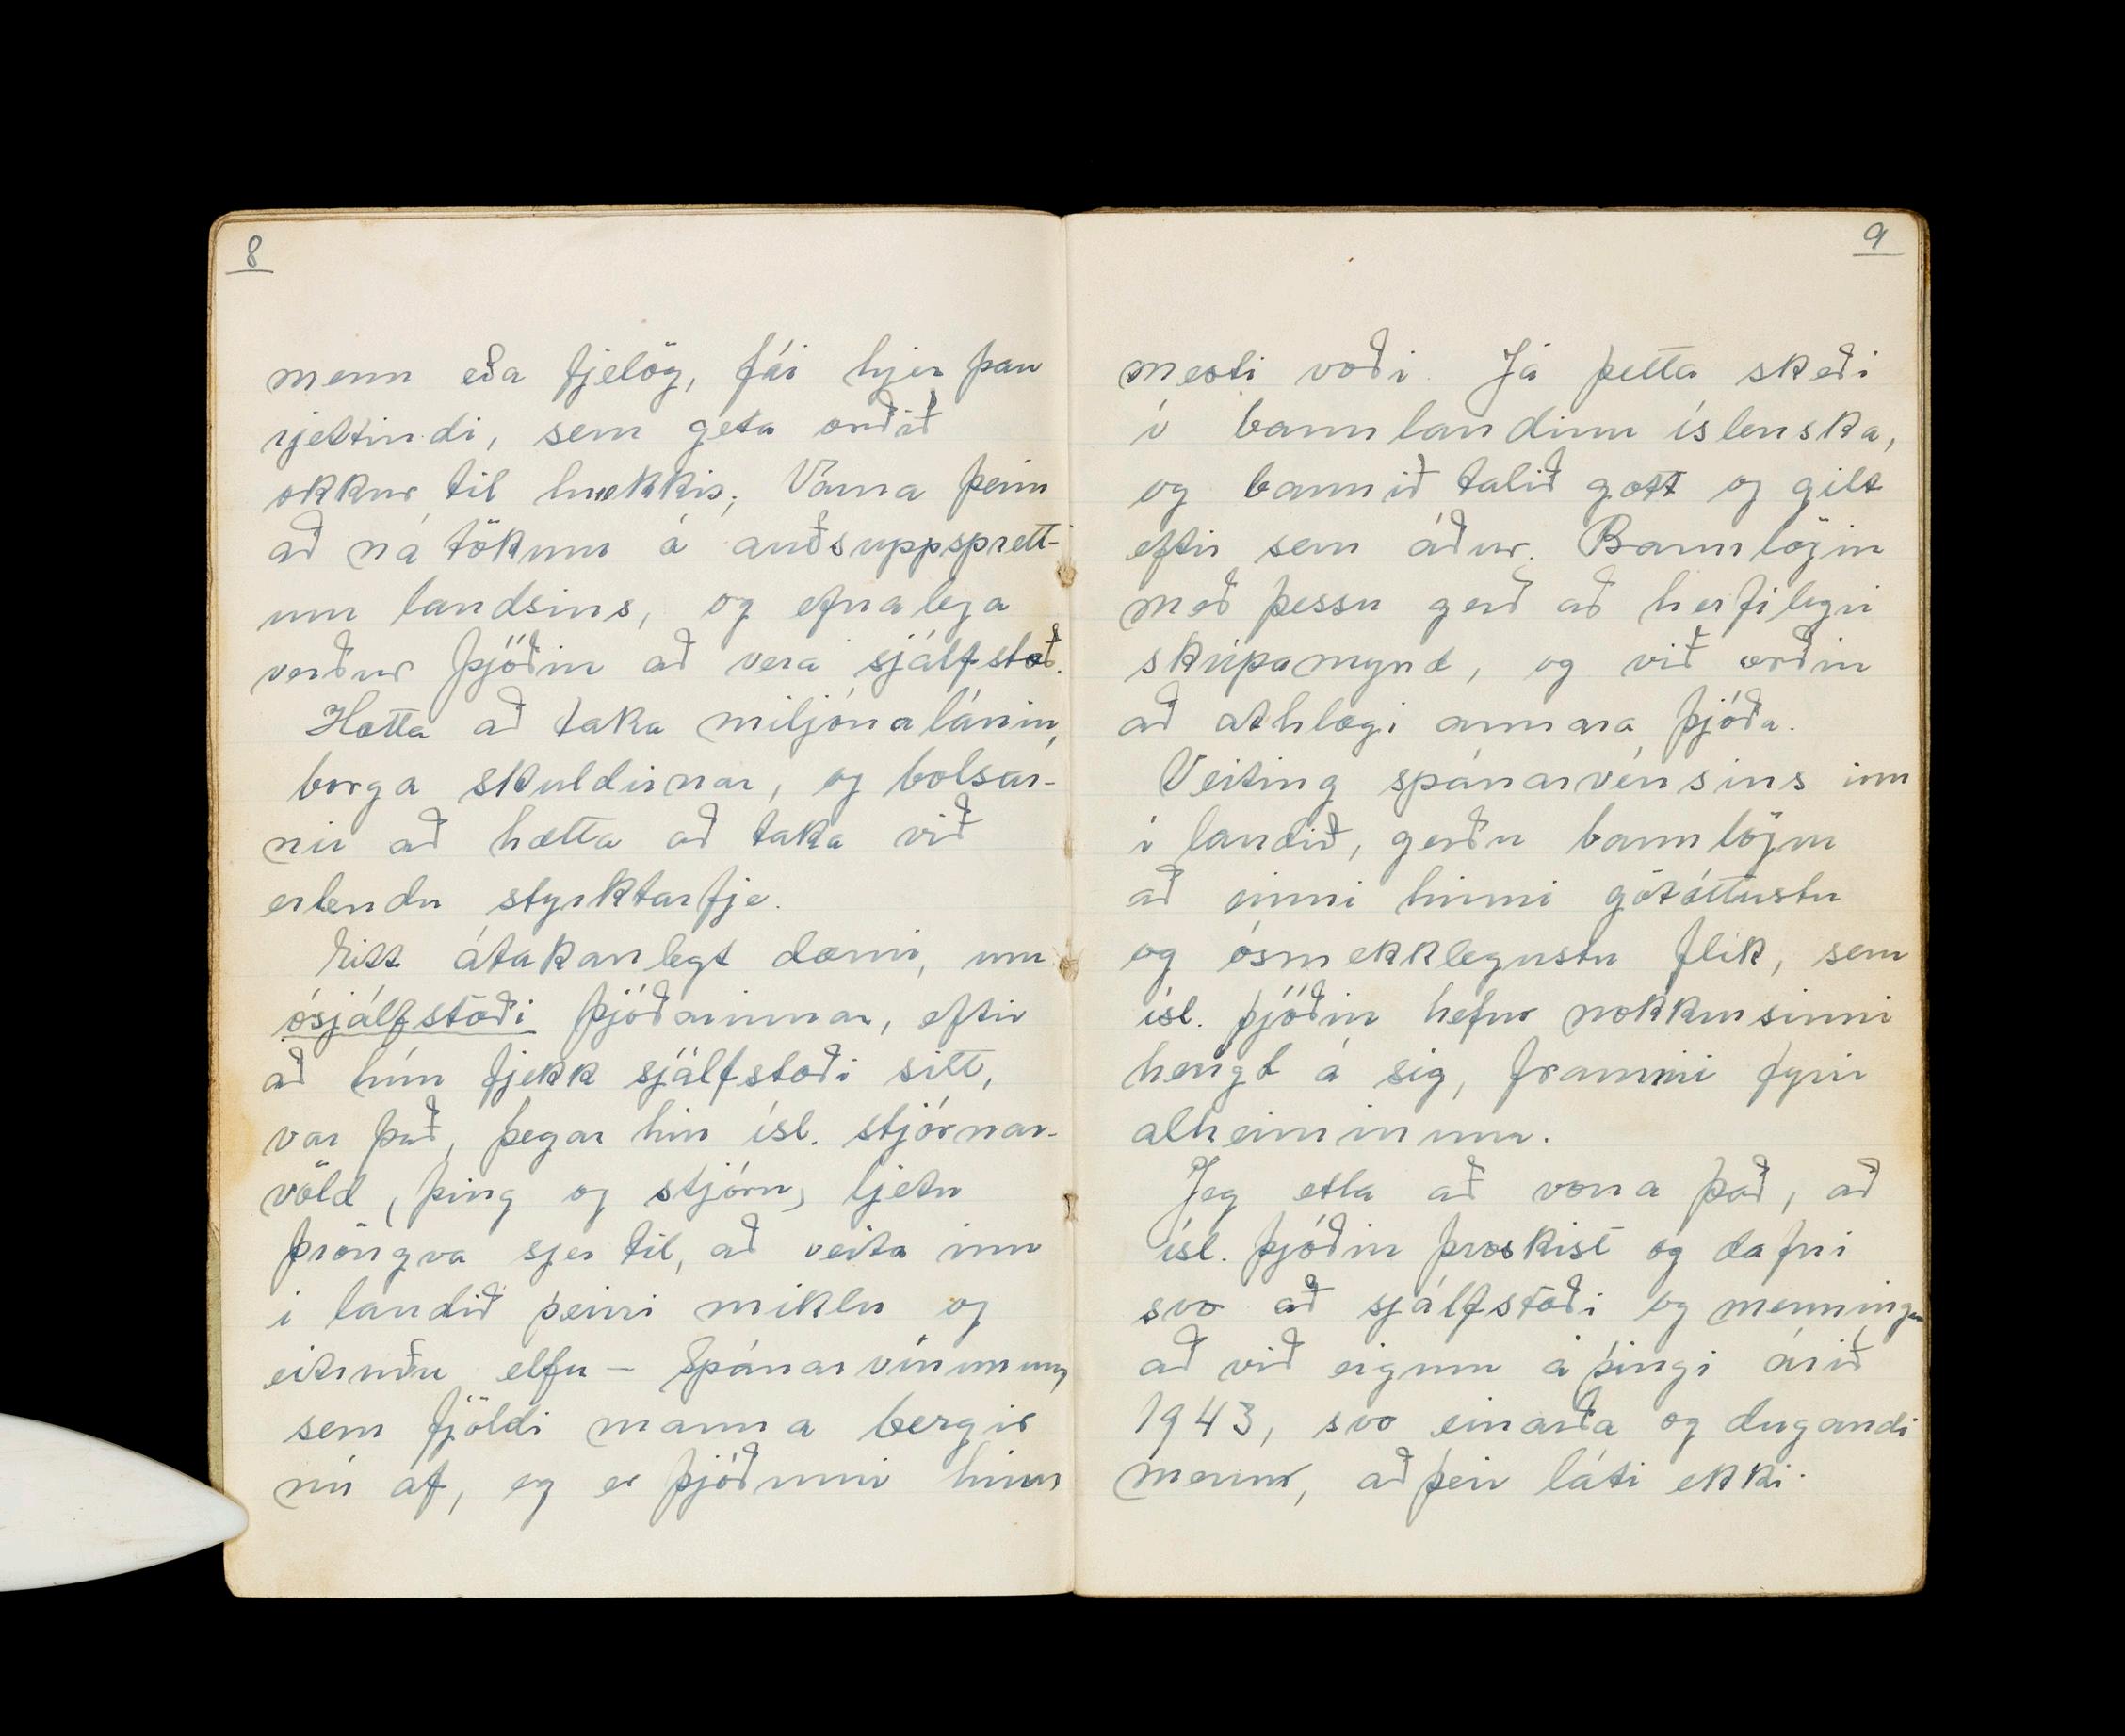 8
menn eða fjelög, fái hjer þau
rjettindi, sem geta orðið
okkur til hnekkis; Varna þeim
að ná tökum á auðsuppsprett-
um landsins, og efnalega
verður þjóðin að vera sjálfstæð.
Hætta að taka miljónalánin,
borga skuldirnar, og bolsar-
nir að hætta að taka við
erlendu styrktarfje.
Eitt átakanlegt dæmi, um
ósjálfstæði þjóðarinnar, eftir
að hún fjekk sjálfstæði sitt,
var það, þegar hin ísl. stjórnar-
völd, þing og stjórn, ljetu
þröngva sjer til, að veita inn
i landið þeirri miklu og
eitruðu elfu - Spánarvínunum,
sem fjöldi manna bergir
nú af, og er þjóðinni hinn
9
mesti voði. Já þetta skeði
í bannlandinu íslenska,
og bannið talið gott og gilt
eftir sem áður. Bannlögin
með þessu gerð að herfilegri
skrípamynd, og við orðin
að athlægi annara þjóða.
Veiting spánarvínsins inn
í landið, gerðu bannlögin
að einni hinni götóttustu
og ósmekklegustu flík, sem
ísl. þjóðin hefur nokkursinni
hengt á sig, frammi fyrir
alheiminum.
Jeg ætla að vona það, að
ísl. þjóðin þroskist og dafni
svo að sjálfstæði og menningu
að við eigum á þingi árið
1943, svo einarða og dugandi
menn, að þeir láti ekki